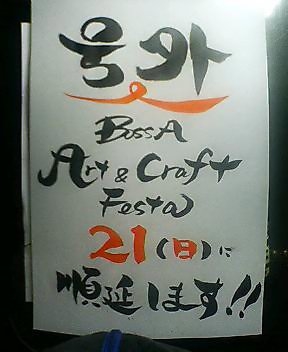 号外
BossA
Art & Craft
Festa
21(日)に
順延します!!